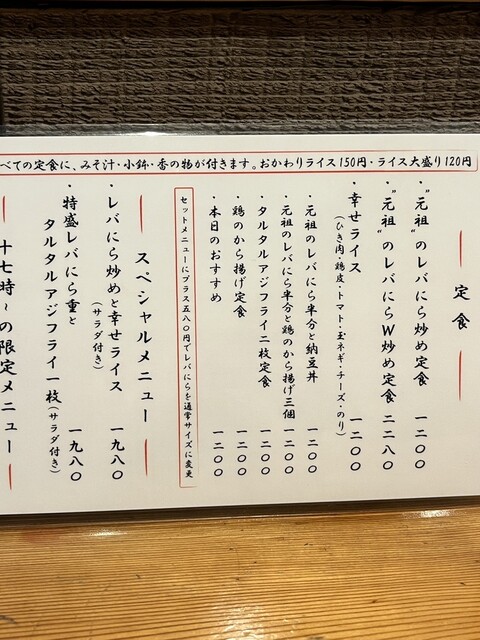 べての定食に、みそ汁・小鉢・香の物が付きます。おかわりライス150円・ライス大盛り120円
定食
・“元祖”のレバにら炒め定食 一二〇〇
・“元祖”のレバにらW炒め定食 二二八〇
・幸せライス 一二〇〇
(ひき肉・鶏皮・トマト・玉ネギ・チーズ・のり)
・元祖のレバにら半分と納豆丼 一二〇〇
・元祖のレバにら半分と鶏のから揚げ三個 一二〇〇
・タルタルアジフライ二枚定食 一二〇〇
・鶏のから揚げ定食 一二〇〇
・本日のおすすめ 一二〇〇
セットメニューにプラス五八〇円でレバにらを通常サイズに変更
スペシャルメニュー
・レバにら炒めと幸せライス 一九八〇
(サラダ付き)
・特盛レバにら重と
タルタルアジフライ一枚(サラダ付き) 一九八〇
十七時〜の限定メニュー